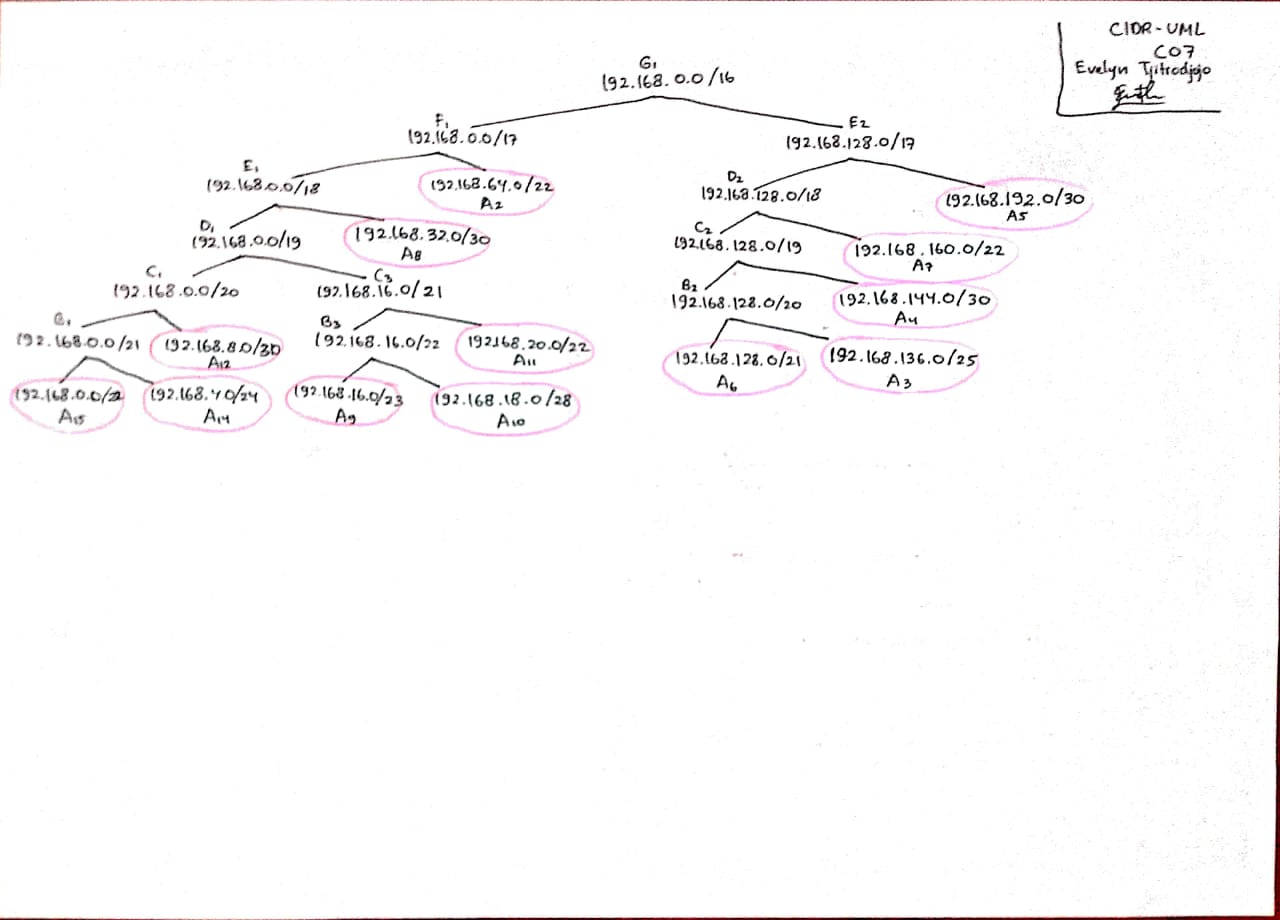 CIDR-UML
C07
Evelyn Tjitrodjojo
G1
192.168.0.0/16
F1
192.168.0.0/17
E2
192.168.128.0/17
E1
192.168.0.0/18
192.168.64.0/22
A2
D2
192.168.128.0/18
192.168.192.0/30
A5
D1
192.168.0.0/19
192.168.32.0/30
A8
C2
192.168.128.0/19
192.168.160.0/22
A7
C1
192.168.0.0/20
C3
192.168.16.0/21
B2
192.168.128.0/20
192.168.144.0/30
A4
B1
192.168.0.0/21
192.168.8.0/30
A12
B3
192.168.16.0/22
192.168.20.0/22
A11
192.168.128.0/21
A6
192.168.136.0/25
A3
192.168.0.0/22
A15
192.168.4.0/24
A14
192.168.16.0/23
A9
192.168.18.0/28
A10